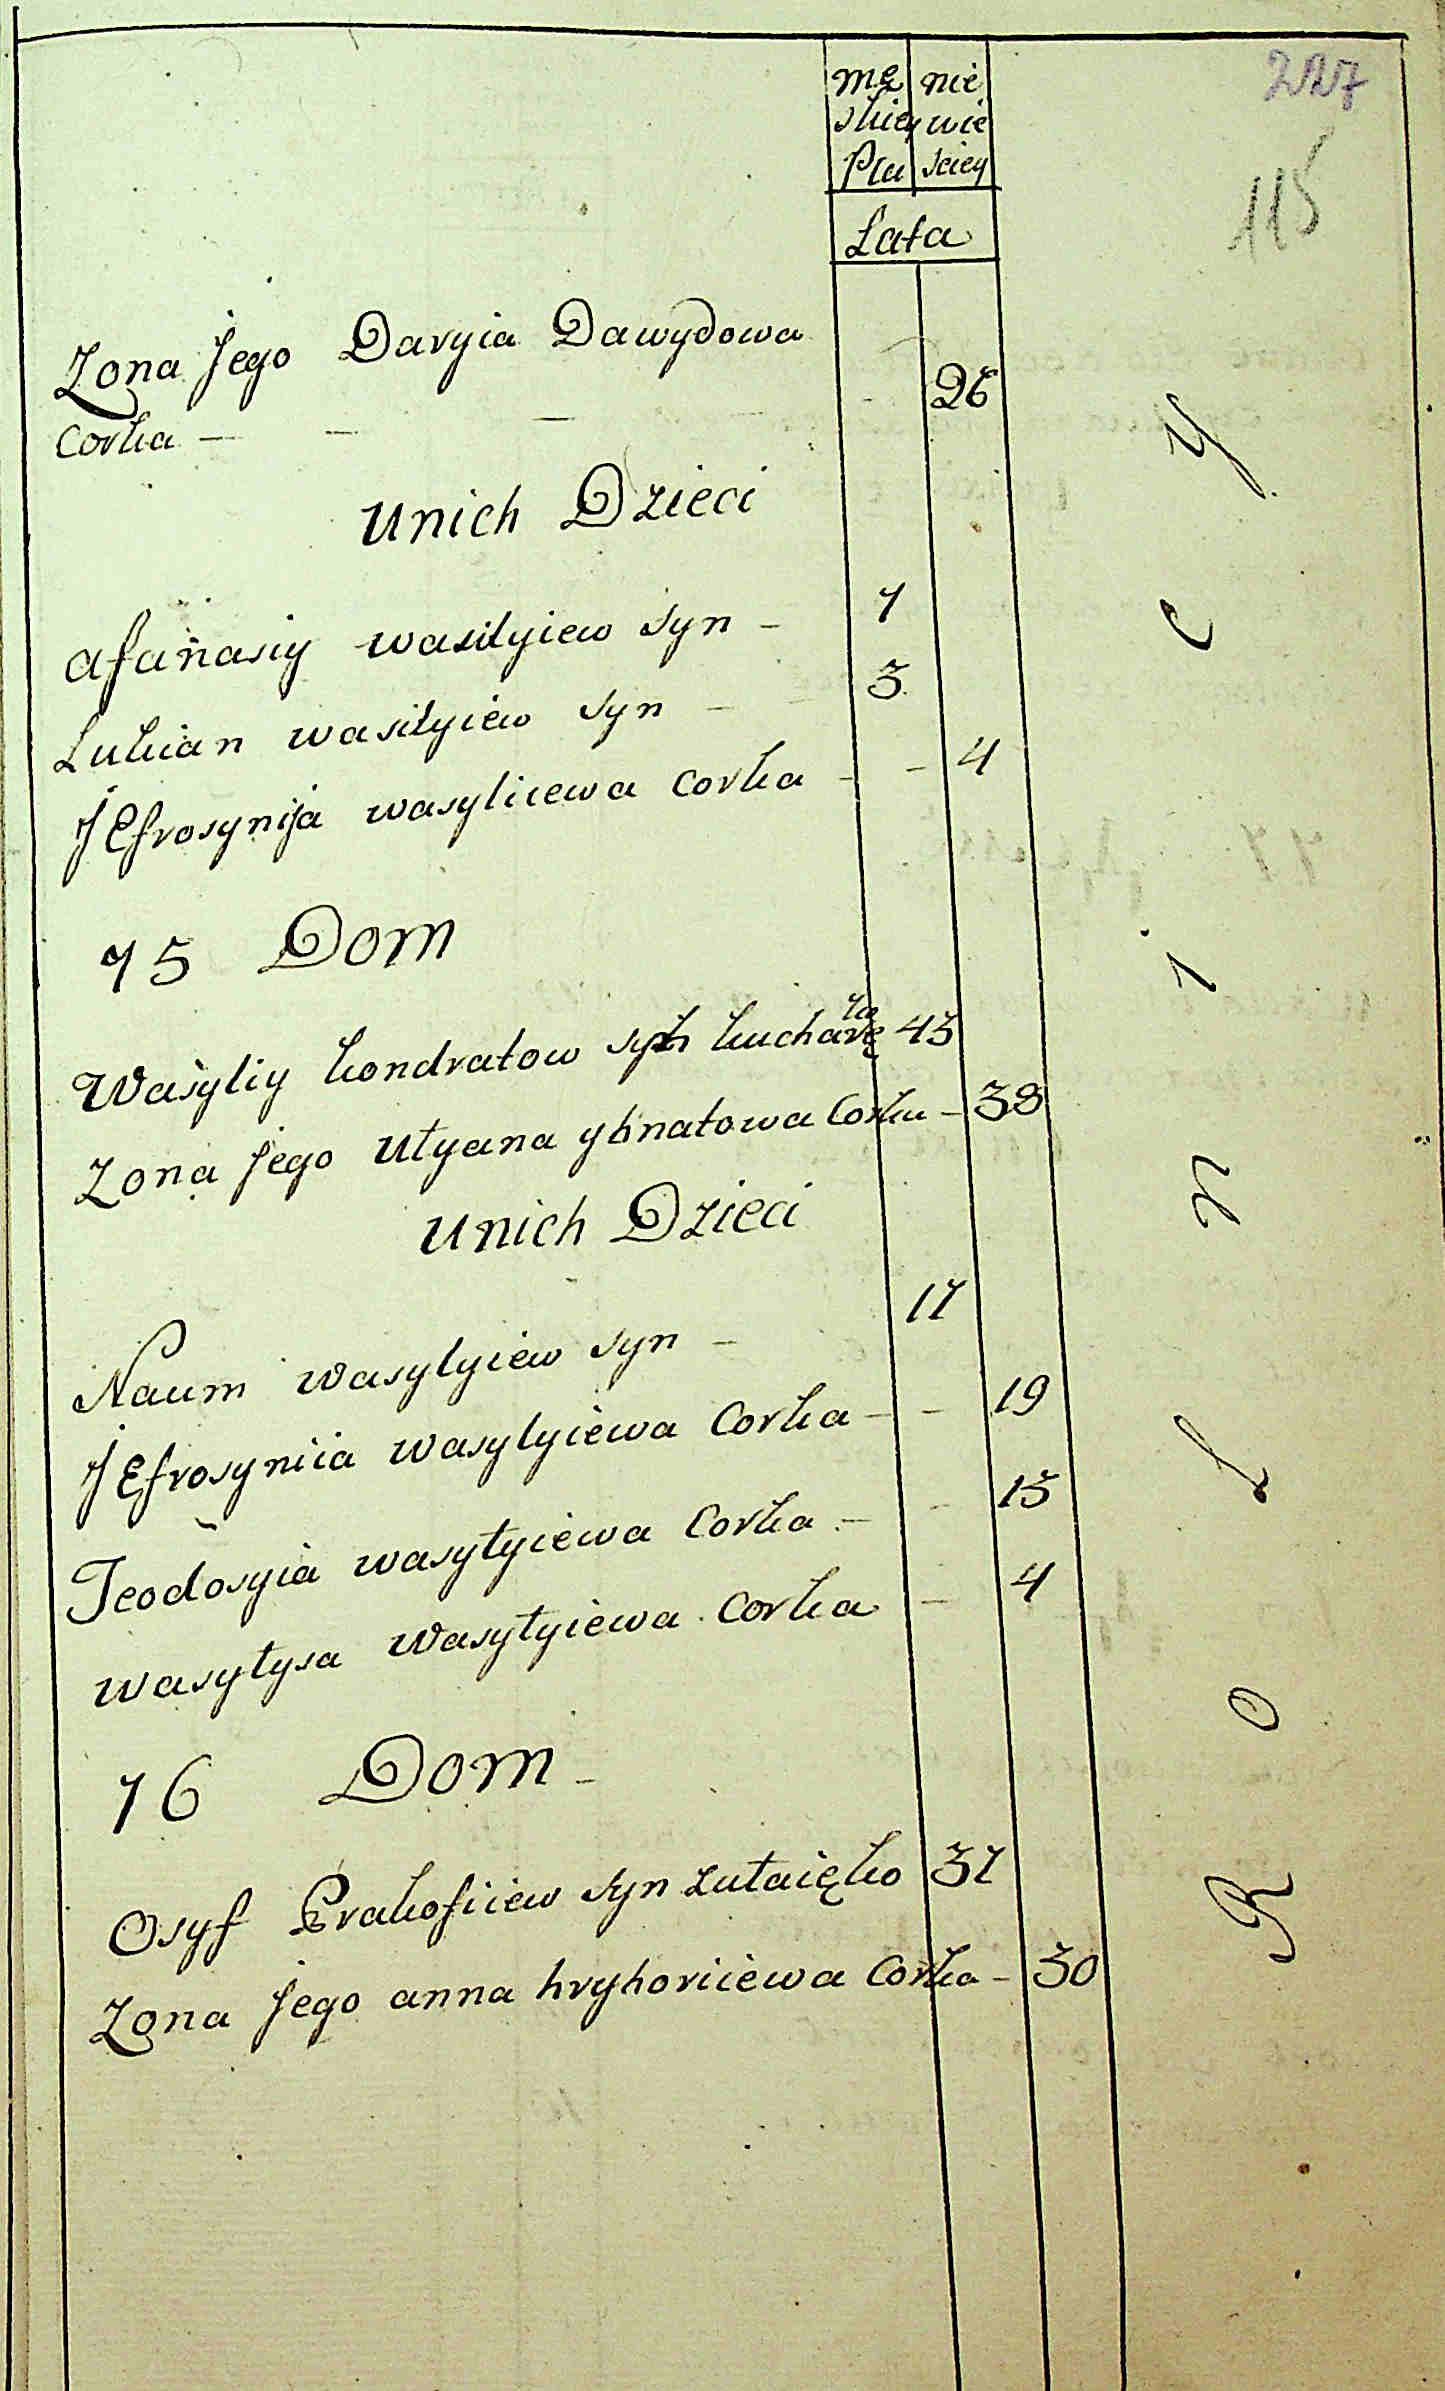 mę nie
skiey wie
Płci sciey
Lata
227
115
Zona Jego Daryia Dawydowa
Corka - - - 26
unich Dzieci
afanasiy wasilyiew syn - 7
Lukian wasilyiew syn - 3
JEfrosynija wasyliiewa corka - - 4
75 Dom
Wasyliy kondratow syn kucharę ko 43
Zona Jego Utyana yhnatowa Corka - 38
unich Dzieci
Naum wasylyiew syn - 17
JEfrosyniia wasylyiewa Corka - - 19
Teodosyia wasyłyiewa Corka - - 15
wasyłysa wasyłyiewa Corka - 4
76 Dom -
Osyf Prakofiiew syn zutaięko 37
Zona Jego anna hryhoriiewa Corka - 30
Rolnicy